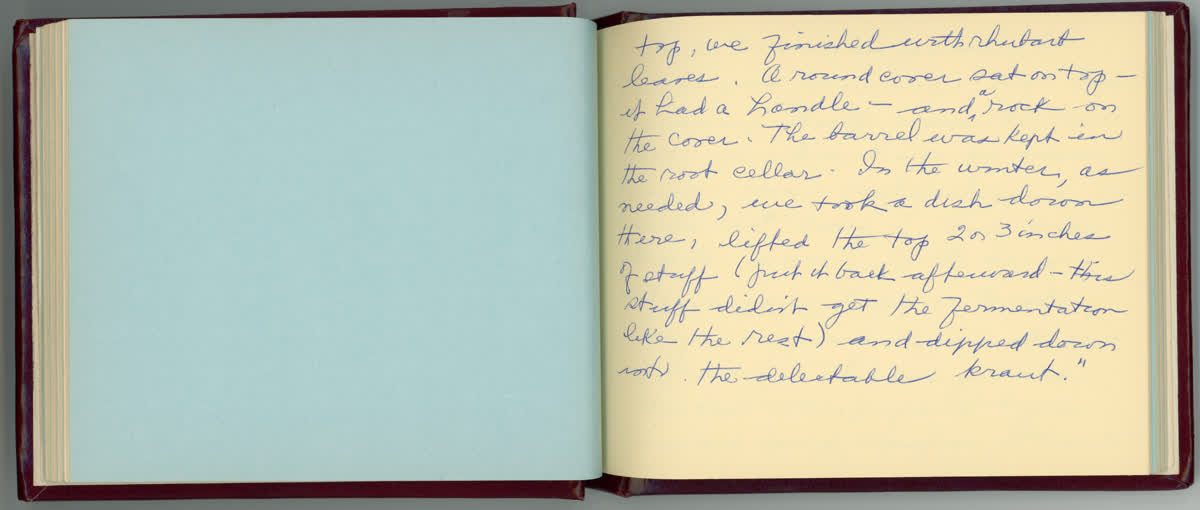 top, we finished with rhubarb
leaves. A round cover sat on top –
it had a handle – and a rock on
the cover. The barrel was kept in
the root cellar. In the winter, as
needed, we took a dish down
there, lifted the top 2 or 3 inches
of stuff (put it back afterward – this
stuff didn't get the fermentation
like the rest) and dipped down
into the delectable kraut."